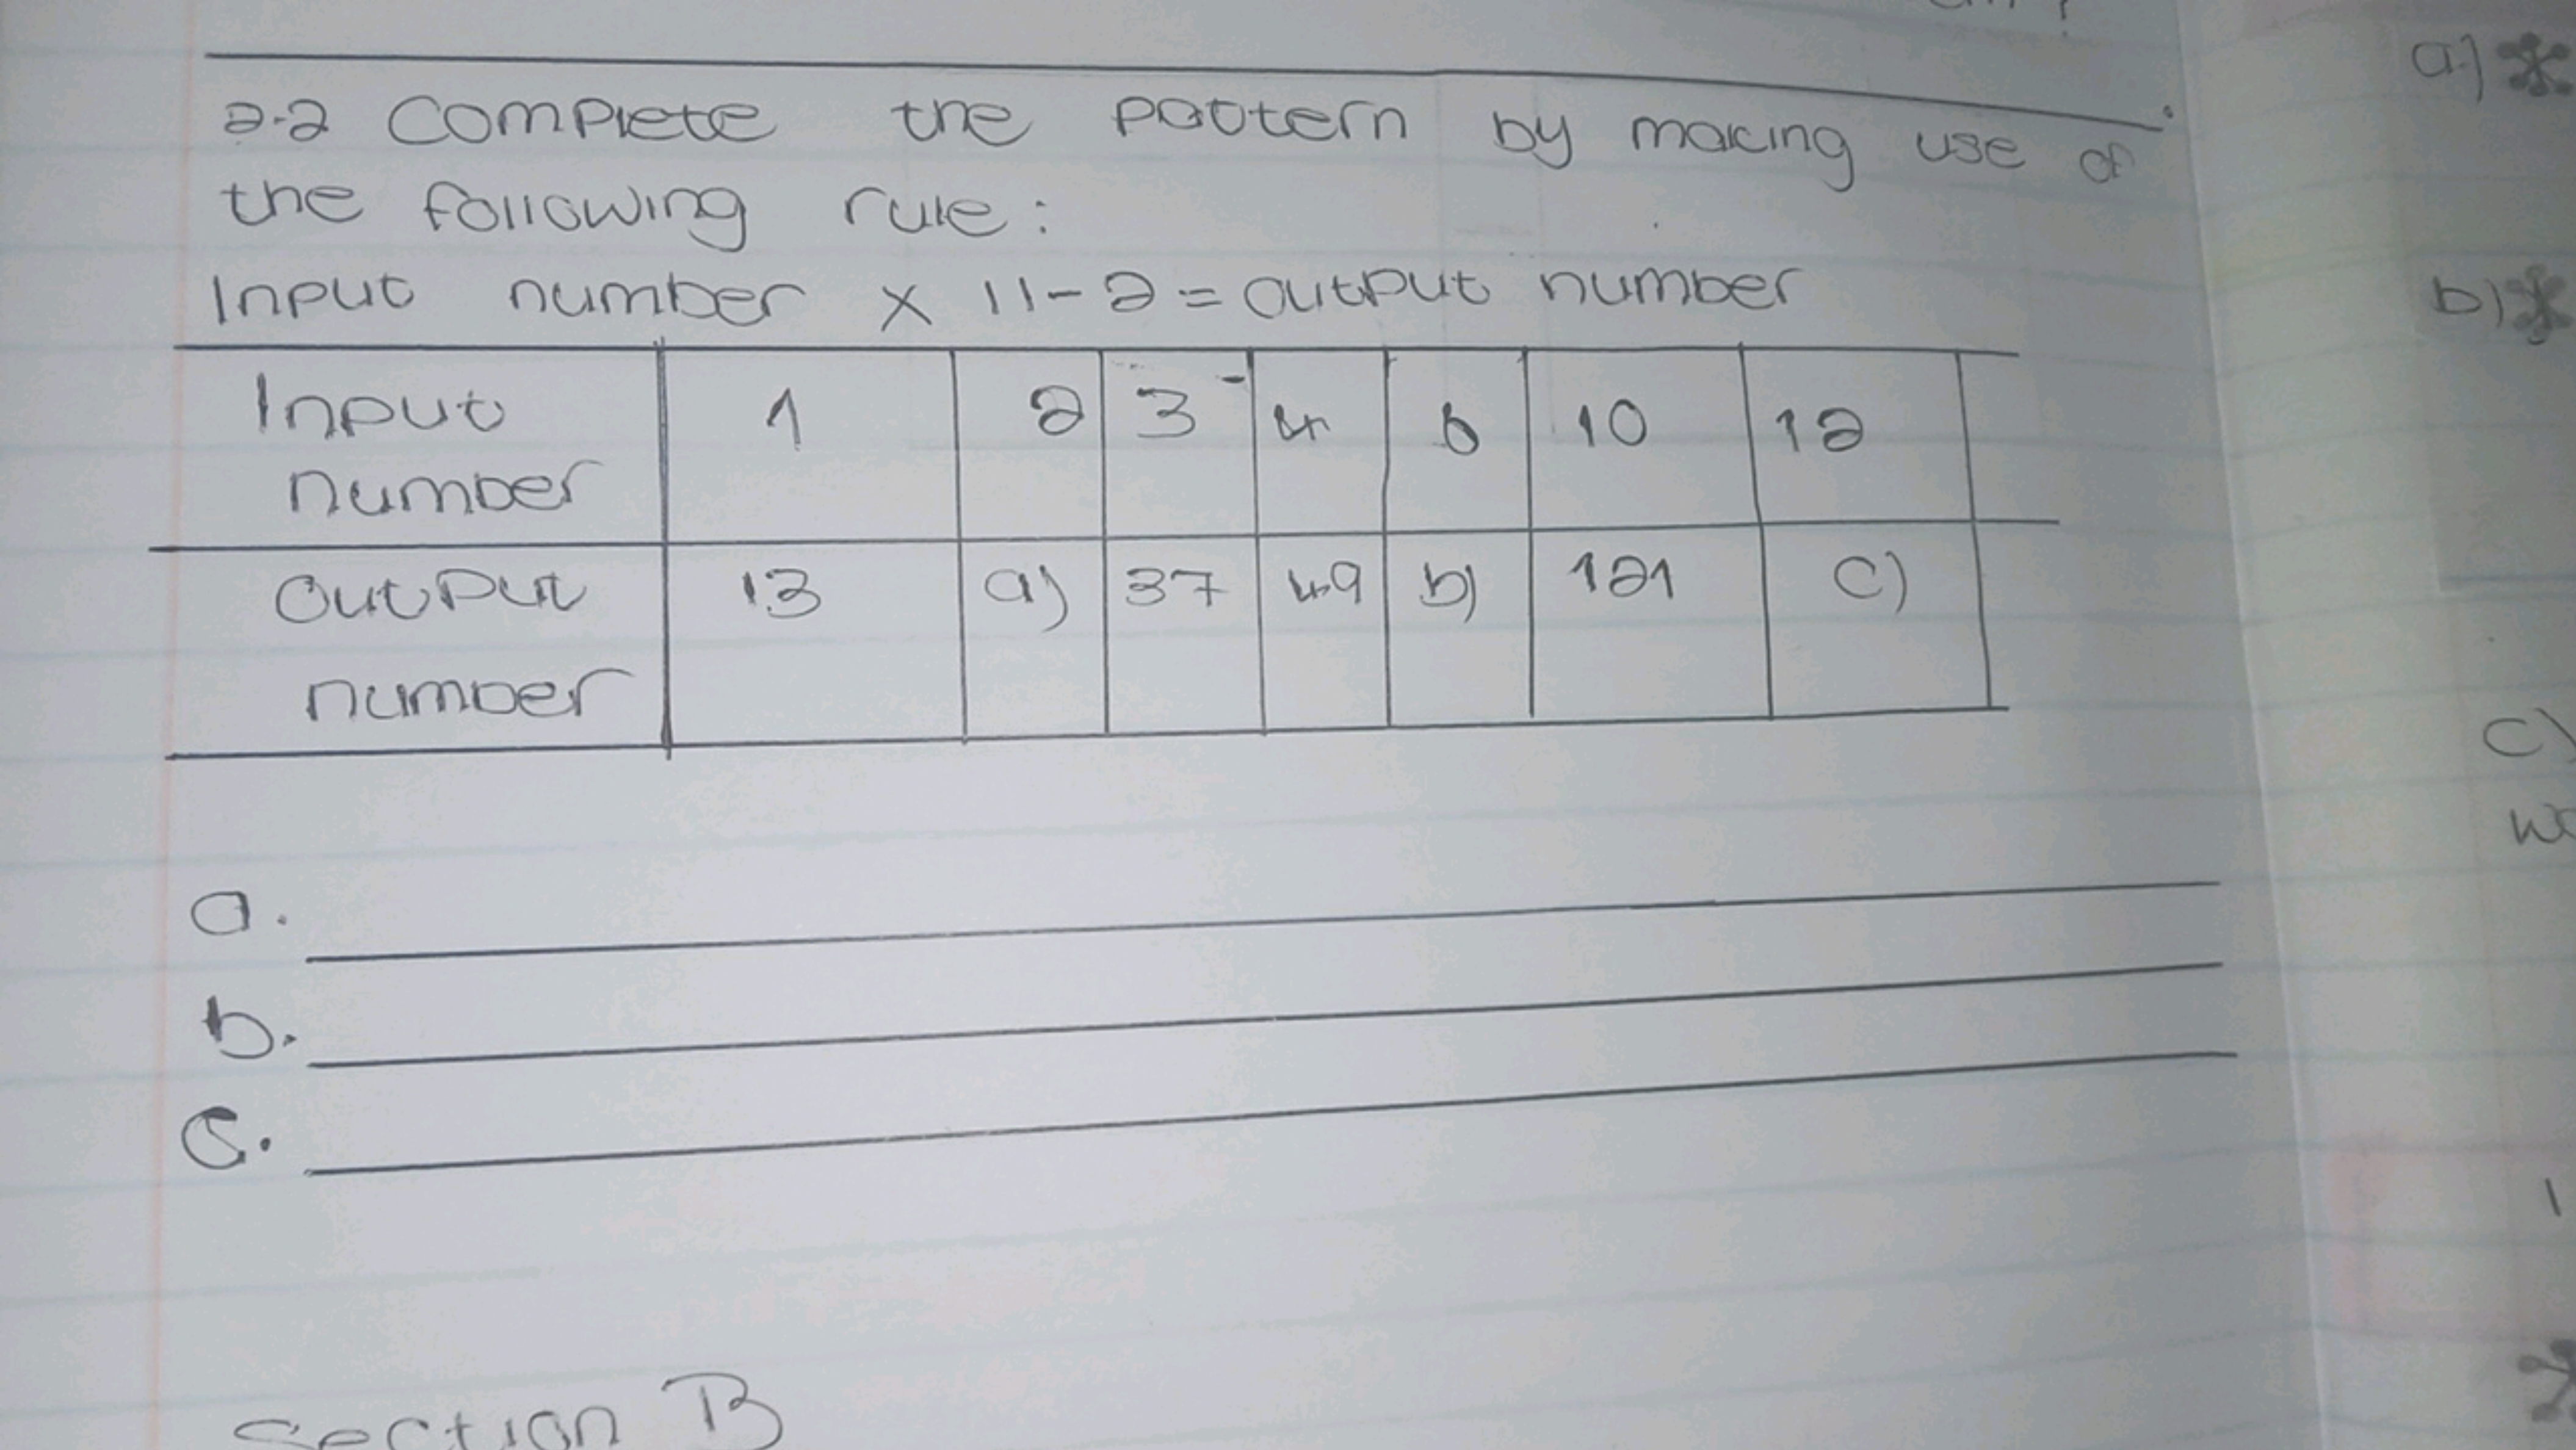 2.2 Complete the pattern by making use of
the following rule:
Input number x 11-2 = output number
Input number 1 2 3 4 6 10 12
Output number 13 a) 37 49 b) 121 c)
a.
b.
c.
Section B
a)
b)
c)